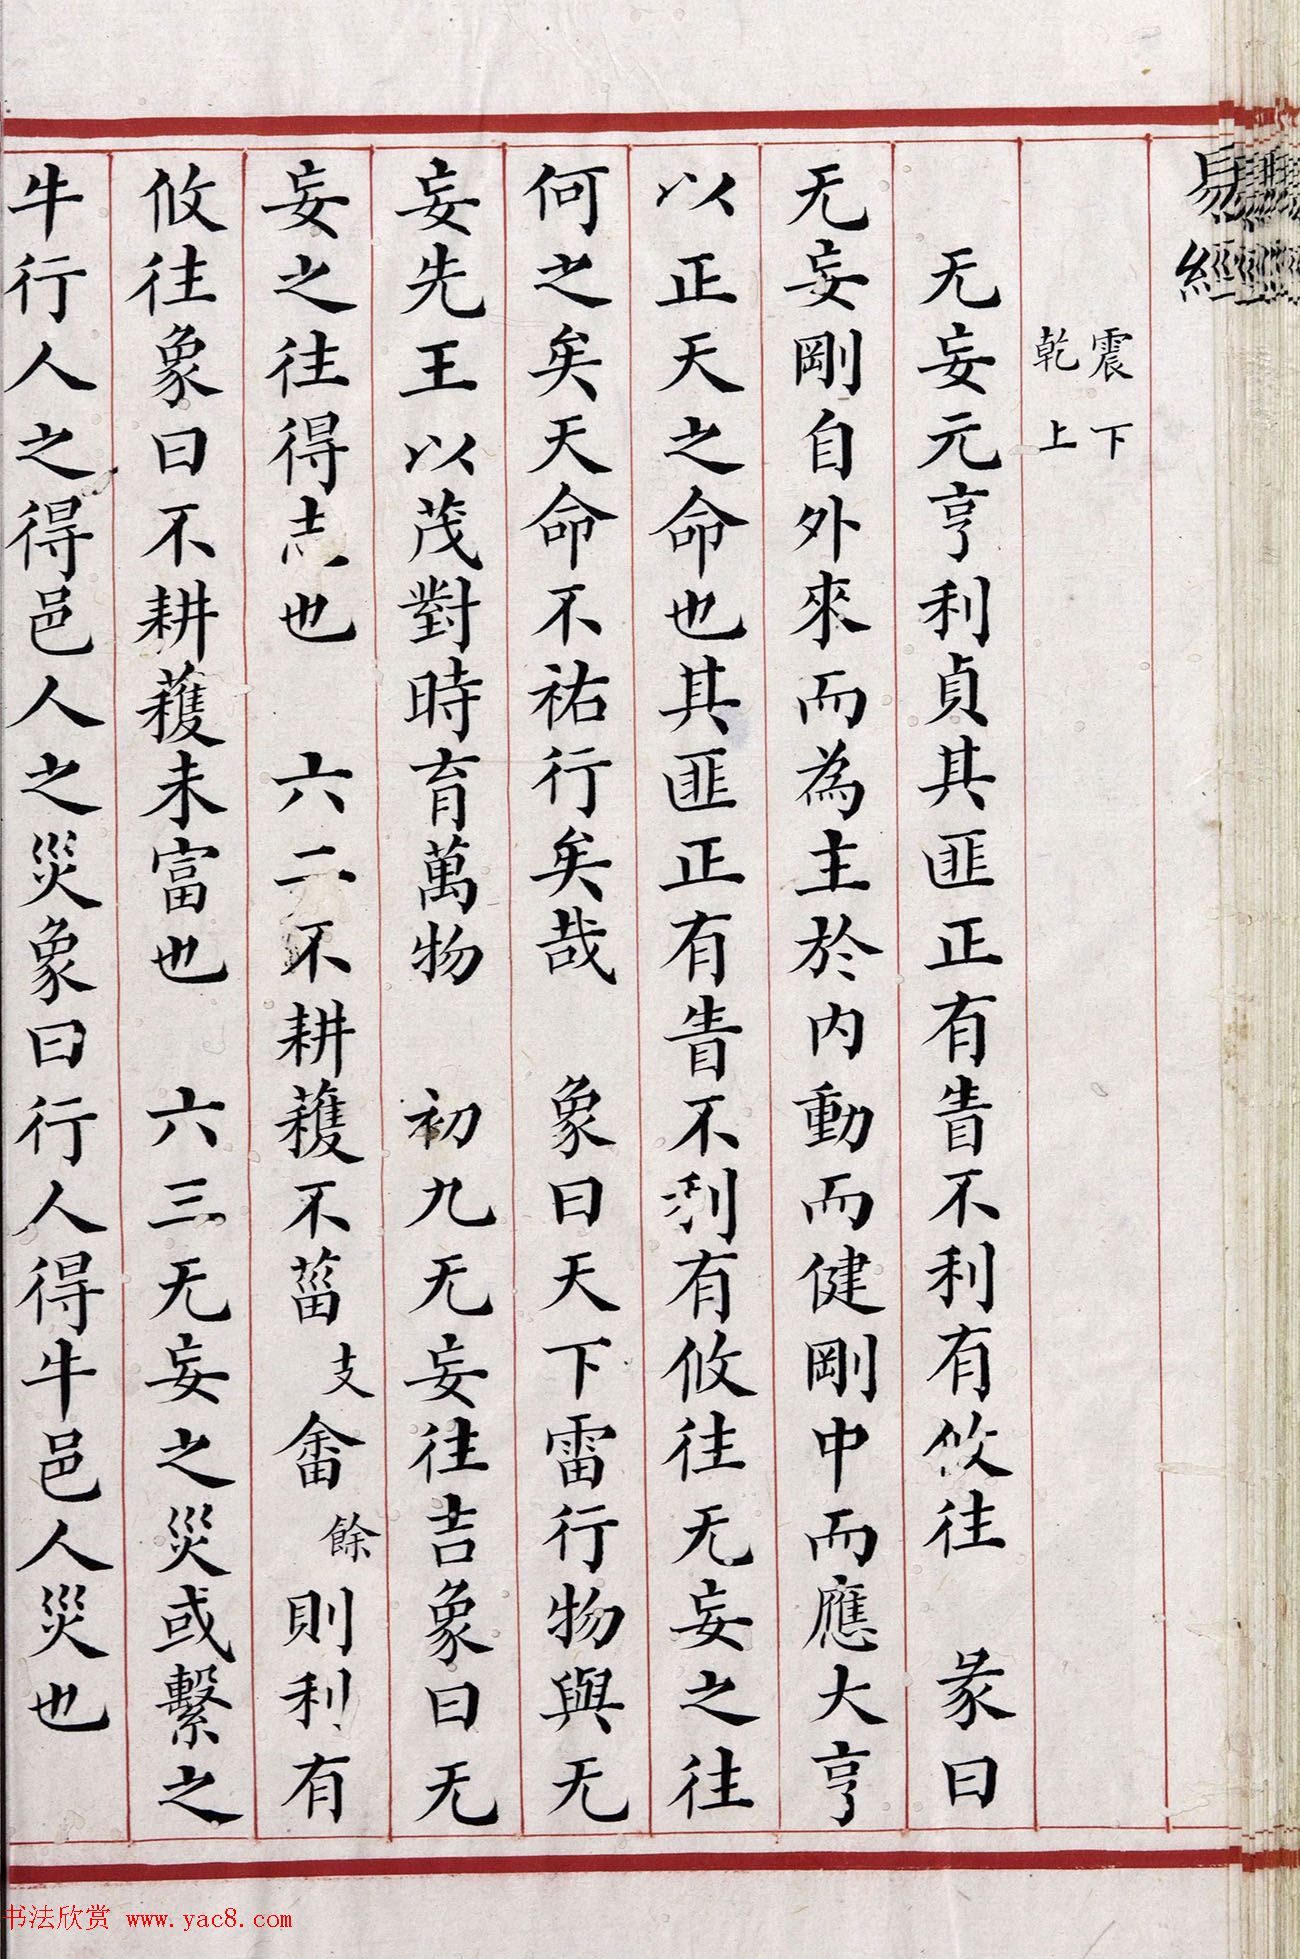 易經
震下
乾上
无妄元亨利貞其匪正有眚不利有攸往 彖曰
无妄剛自外來而為主於内動而健剛中而應大亨
以正天之命也其匪正有眚不利有攸往无妄之往
何之矣天命不祐行矣哉 象曰天下雷行物與无
妄先王以茂對時育萬物 初九无妄往吉象曰无
妄之往得志也 六二不耕穫不菑支畬餘則利有
攸往象曰不耕穫未富也 六三无妄之災或繫之
牛行人之得邑人之災象曰行人得牛邑人災也
书法欣赏 www.yac8.com